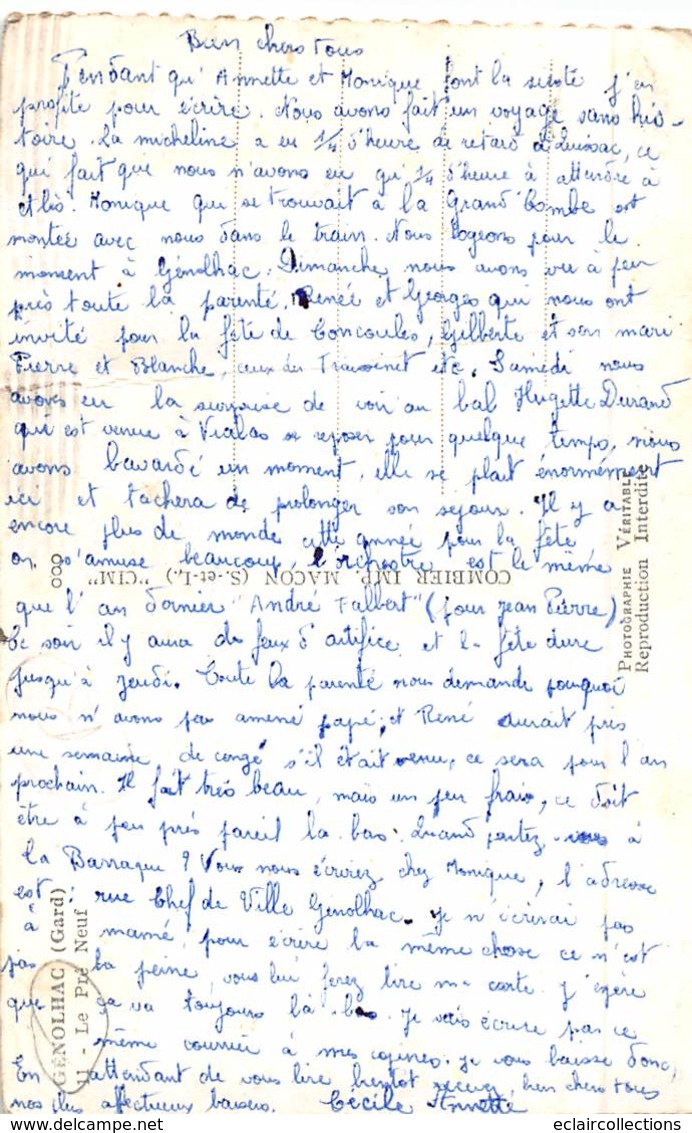 Bien chers tous
Pendant qu'Annette et Monique font la sieste j'en
profite pour écrire. Nous avons fait un voyage sans his-
toire. La micheline a eu 1/4 d'heure de retard à Quissac, ce
qui fait que nous n'avons eu qu'1/4 d'heure à attendre à
Alès. Monique qui se trouvait à la Grand'Combe est
montée avec nous dans le train. Nous logeons pour le
moment à Génolhac. Dimanche nous avons vu à peu
près toute la parenté. Renée et Georges qui nous ont
invité pour la fête de Concoules, Gilberte et son mari
Pierre et Blanche, ceux du etc. Samedi nous
avons eu la surprise de voir au bal Hugette Durand
qui est venue à Vialas se reposer pour quelque temps, nous
avons bavardé un moment, elle se plait énormément
ici et tachera de prolonger son sejour. Il y a
encore plus de monde cette année pour la fête
on s'amuse beaucoup, l'orchestre est le même
que l'an dernier "André Falbert" (pour Jean Pierre)
Ce soir il y aura des feux d'artifice et la fête dure
jusqu'à jeudi. Toute la parenté nous demande pourquoi
nous n'avons pas amené papé, et René aurait pris
une semaine de congé s'il était venu, ce sera pour l'an
prochain. Il fait très beau, mais un peu frais, ce doit
être à peu près pareil la-bas. Quand partez vous à
la Barraque ? Vous nous écrirez chez Monique, l'adresse
est : rue Chef de Ville Génolhac. Je n'écrirai pas
à mamé, pour écrire la même chose ce n'est
pas la peine, vous lui ferez lire ma carte. J'espère
que ça va toujours là-bas. Je vais écrire par ce
même courrier à mes copines. Je vous baisse donc,
En attendant de vous lire bientot recevez, bien chers tous
nos plus affectueux baisers. Cécile Annette
COMBIER IMP. MACON (S.-et-L.) "CIM"
PHOTOGRAPHIE VÉRITABLE
Reproduction Interdite
GENOLHAC (Gard)
11 - Le Pré Neuf
eclaircollections